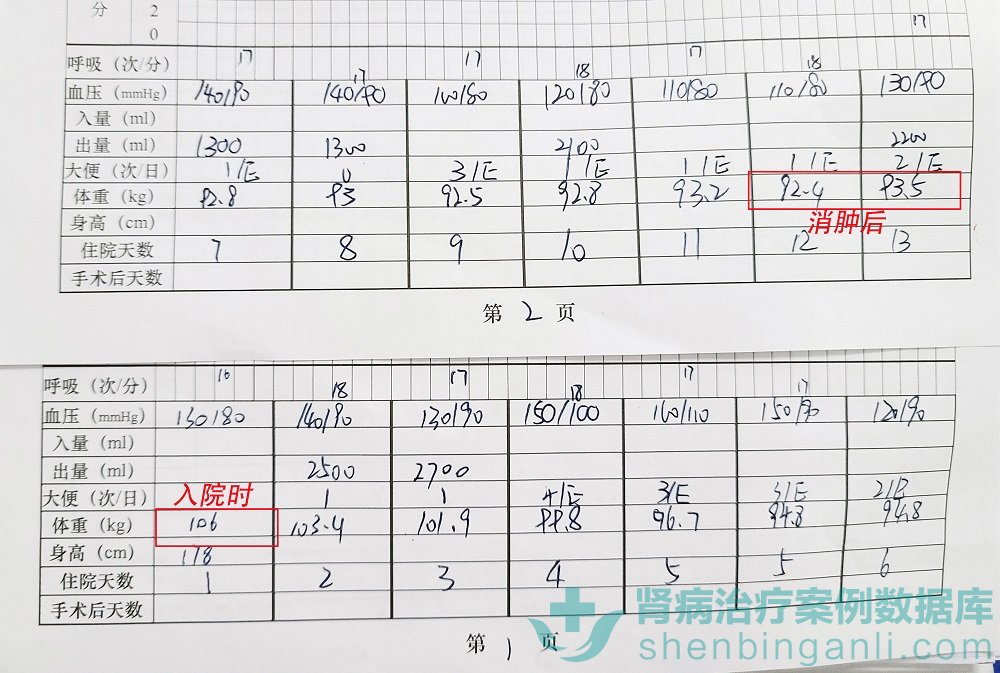 分 2
0
17
呼吸（次/分） 17 17 17 18 17 18
血压（mmHg） 140/90 140/90 140/80 120/80 110/80 110/80 130/90
入量（ml）
出量（ml） 1300 1300 2100 2200
大便（次/日） 1/E 0 3/E 1/E 1/E 1/E 2/E
体重（kg） 92.8 93 92.5 92.8 93.2 92.4 93.5
身高（cm） 消肿后
住院天数 7 8 9 10 11 12 13
手术后天数
第 2 页
呼吸（次/分） 16 18 17 18 17 17
血压（mmHg） 130/80 140/90 130/90 150/100 160/110 150/90 120/90
入量（ml）
出量（ml） 2500 2700
大便（次/日） 入院时 1 1 4/E 3/E 3/E 2/E
体重（kg） 106 103.4 101.9 99.8 96.7 94.8 94.8
身高（cm） 178
住院天数 1 2 3 4 5 5 6
手术后天数
第 1 页
肾病治疗案例数据库
shenbinganli.com